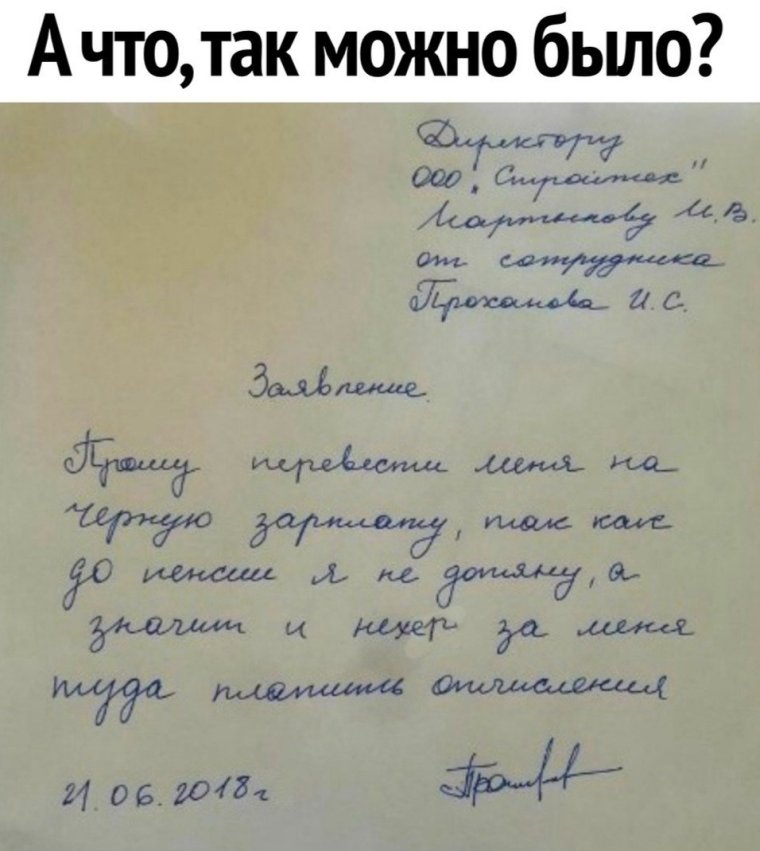 А что, так можно было?
Директору
ООО "Стройтек"
Мартынову И.В.
от сотрудника
Проханова И.С.
Заявление.
Прошу перевести меня на
черную зарплату, так как
до пенсии я не дотяну, а
значит и нехер за меня
туда платить отчисления
21.06.2018г